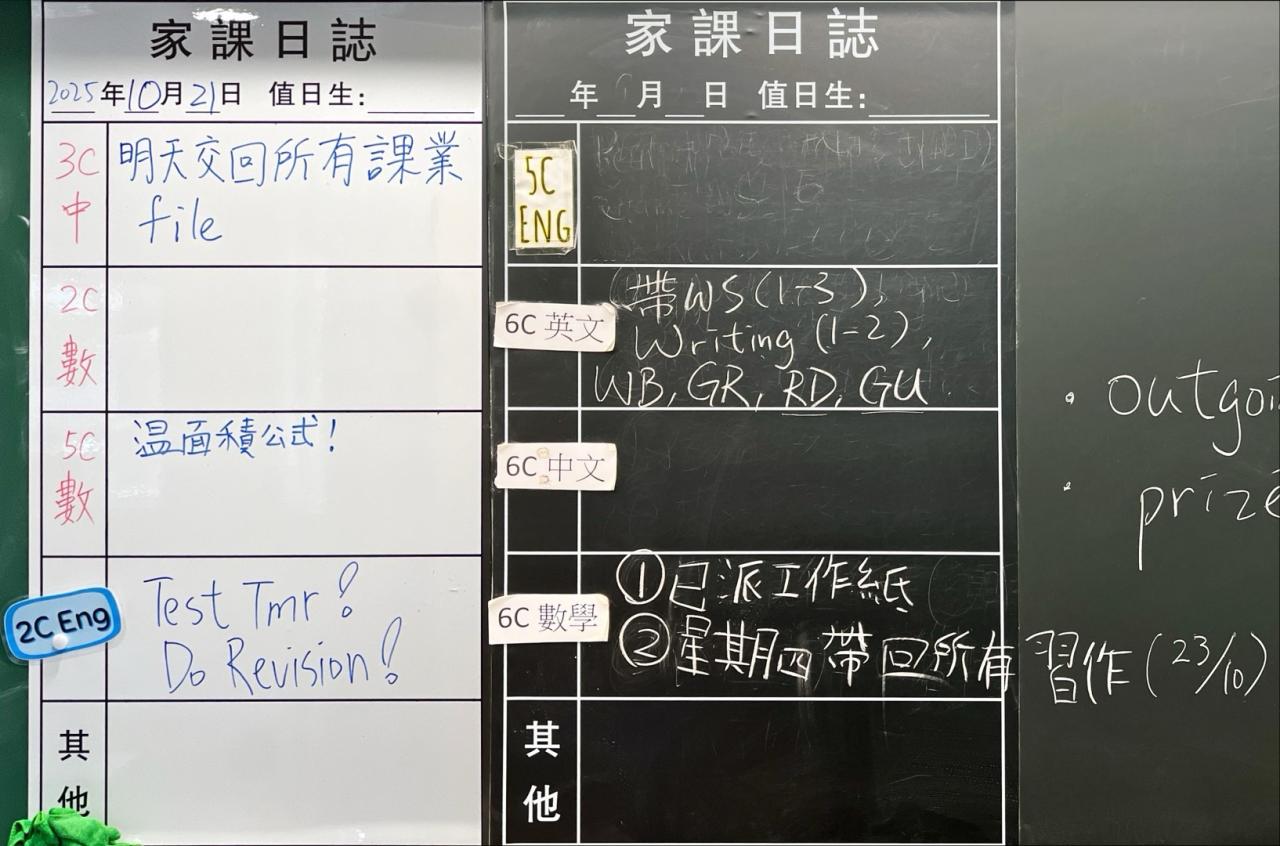 家課日誌
2025年10月21日 值日生:
3C
中
明天交回所有課業
file
2C
數
5C
數
温面積公式!
2C Eng
Test Tmr!
Do Revision!
其
他
家課日誌
年 月 日 值日生:
5C
ENG
6C 英文
帶WS(1-3),
Writing (1-2),
WB, GR, RD, GU
6C 中文
6C 數學
①已派工作紙
②星期四帶回所有習作(23/10)
其
他
• outgoi
• prize